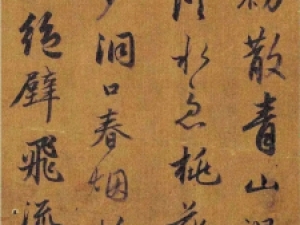 散青山
水急桃花
洞口春烟
絕壁飛流